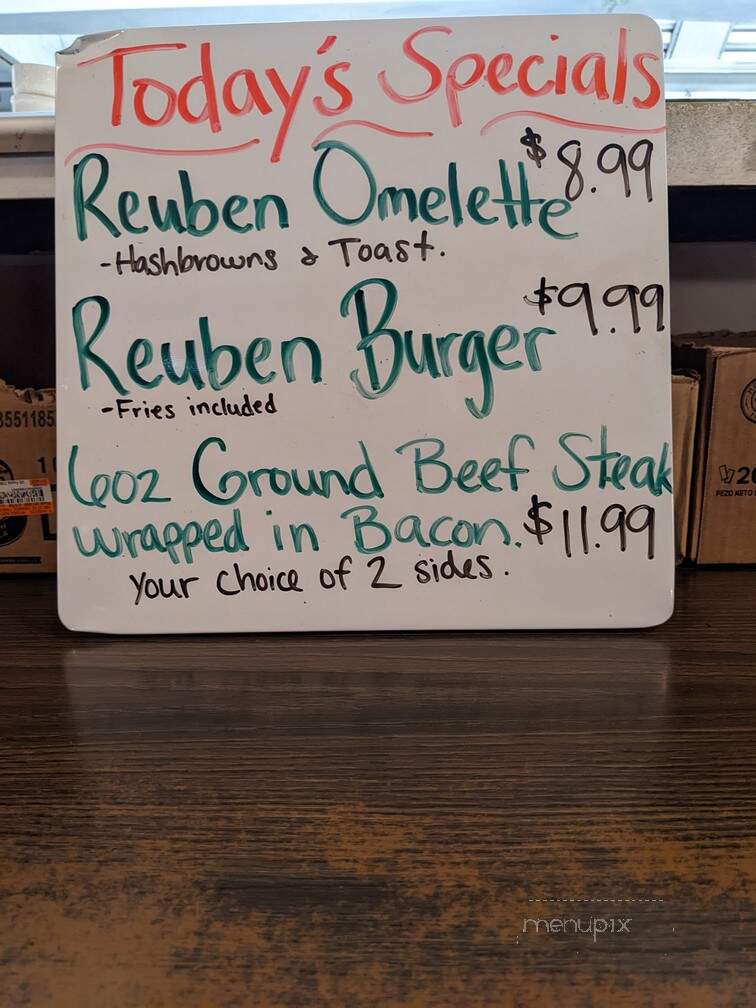 Today's Specials
Reuben Omelette $8.99
-Hashbrowns & Toast.
Reuben Burger $9.99
-Fries included
6oz Ground Beef Steak
wrapped in Bacon. $11.99
your choice of 2 sides.
551185
20
PEZO NETO
menupix